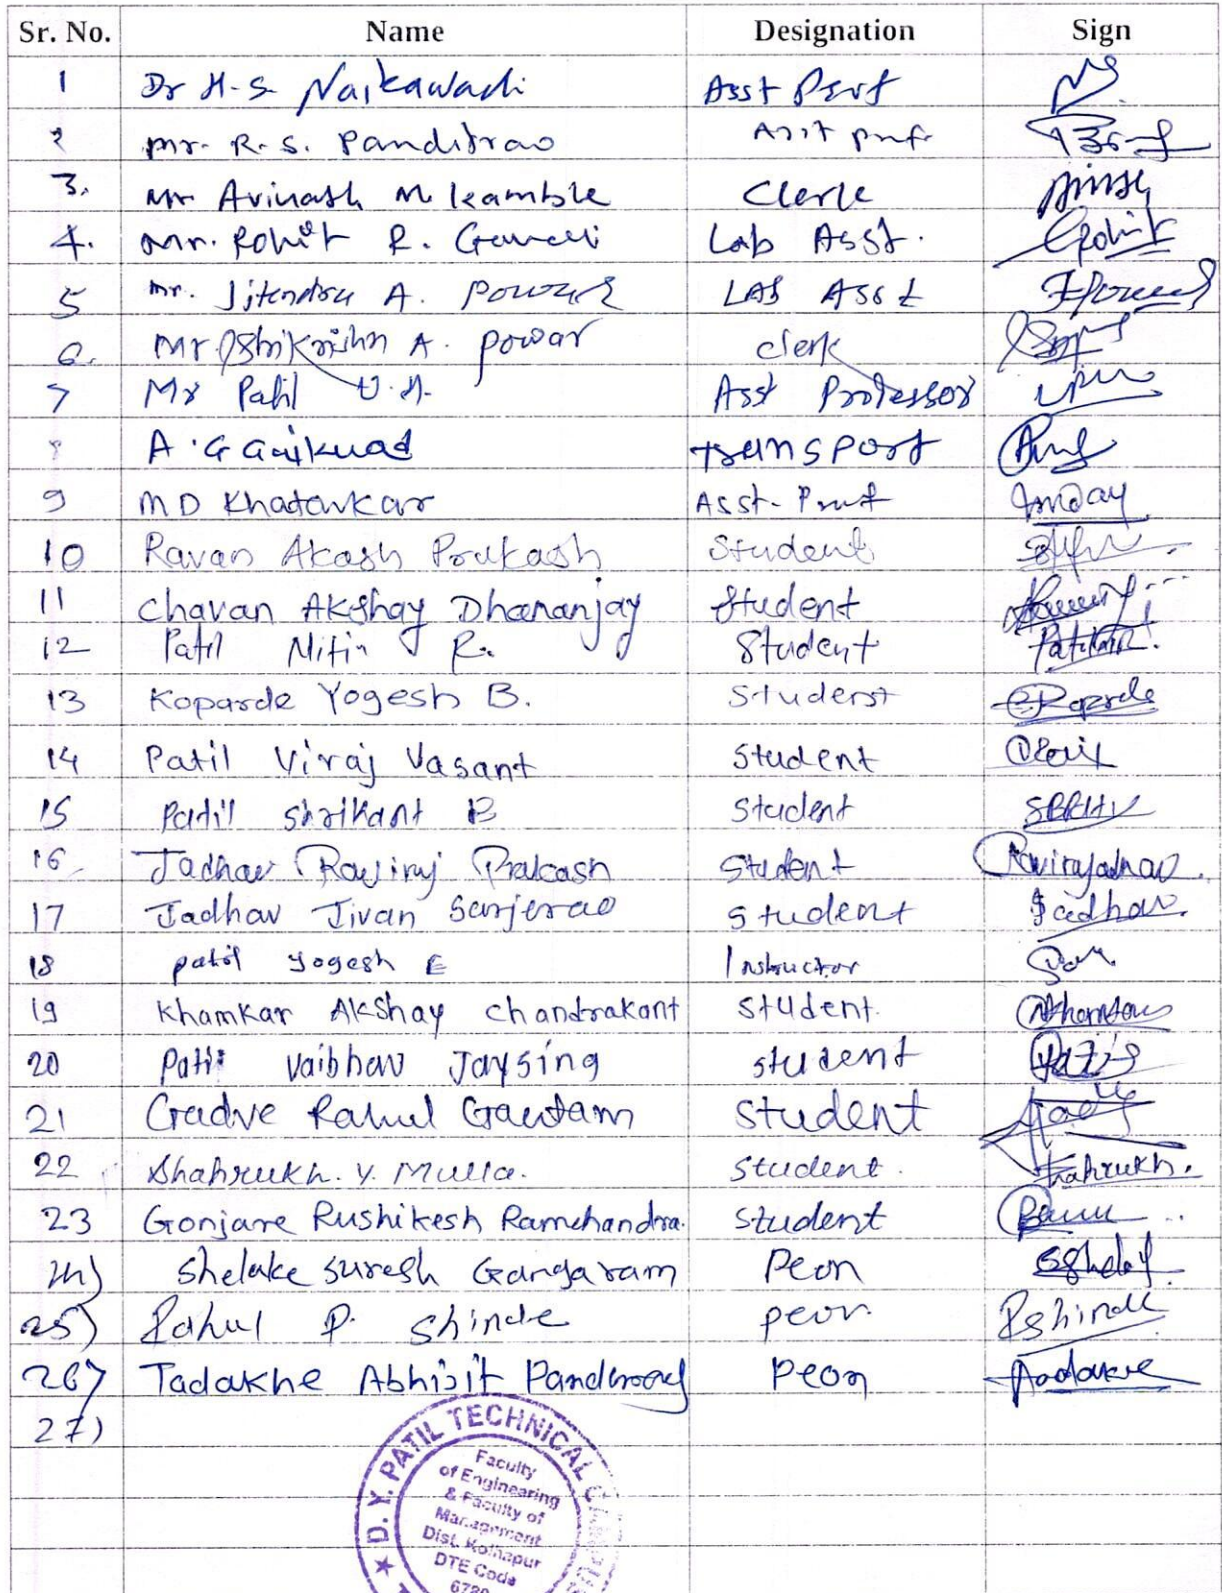 Sr. No. Name Designation Sign
1 Dr H.S. Naikawadi Asst Prof
2 Mr. R.S. Panditrao Asst prof.
3. Mr Avinash M. Kamble Clerk
4. Mr. Rohit R. Gavali Lab Asst. Rohit
5 Mr. Jitendra A. Powar LAB Asst
6. Mr. Shrikrishn A. powar clerk
7 Mr Patil U.A. Asst Professor
8 A.G Gaikwad Transport
9 MD Khatavkar Asst. Prof
10 Ravan Akash Prakash Student
11 Chavan Akshay Dhananjay Student
12 Patil Nitin R. Student
13 Koparde Yogesh B. Student Koparde
14 Patil Viraj Vasant Student
15 Patil Shrikant B Student
16 Jadhav Raviraj Prakash Student Ravirajadhav.
17 Jadhav Jivan Sarjerao Student Jadhav.
18 patil yogesh E Instructor
19 Khamkar Akshay Chandrakant Student
20 Patil Vaibhav Jaysing student
21 Gadve Rahul Gautam Student
22 Shahrukh. Y. Mulla. Student. Shahrukh.
23 Gonjare Rushikesh Ramchandra. Student
24) Shelake Suresh Gangaram Peon
25) Rahul P. Shinde peon. Rshinde
26) Tadakhe Abhijit Pandurang Peon
27)
D. Y. PATIL TECHNICAL CAMPUS
Faculty
of Engineering
& Faculty of
Management
Dist. Kolhapur
DTE Code
6780